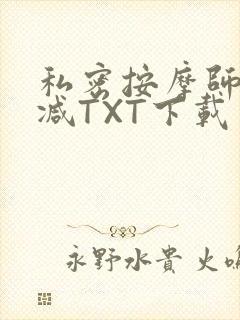 私密按摩師
减TXT下載
永野水貴 火鳴